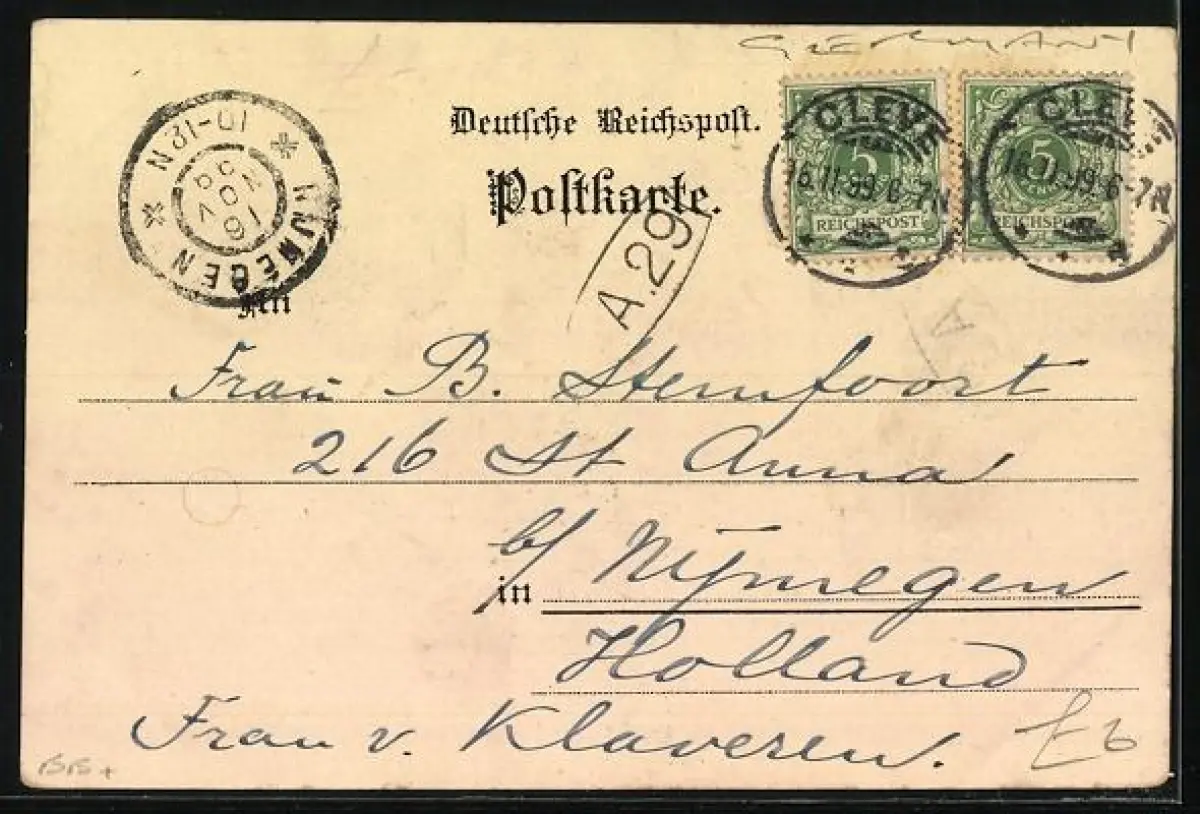 GERMANY
Deutsche Reichspost.
Postkarte.
CLEVE
16.11.99.6-7N
5
REICHSPOST
CLEVE
16.11.99.6-7N
5
REICHSPOST
NIJMEGEN
10-12N
16 NOV 99
A.29
An
Frau B. Stemfoort
216 St Anna
in b/ Nijmegen
Holland
Frau v. Klaveren.
BB+